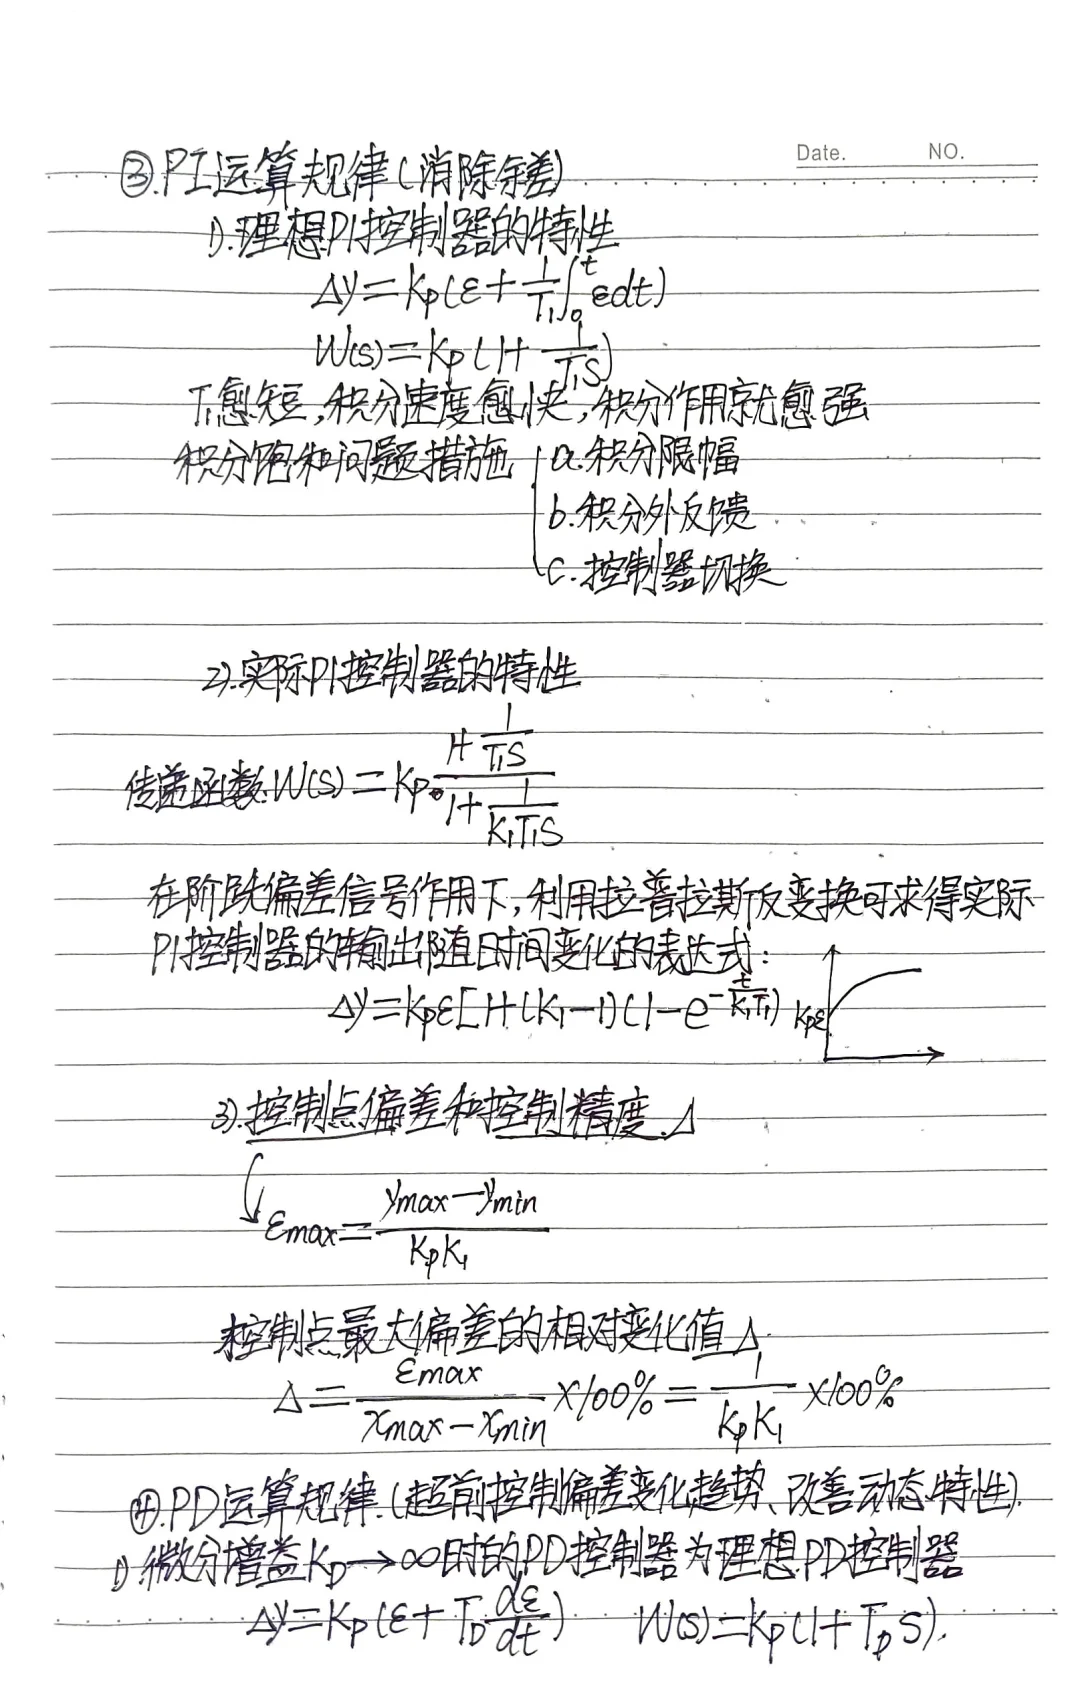 Date. NO.
③.PI运算规律(消除余差)
1).理想PI控制器的特性
Δy=Kp(ε+1/T₁∫₀ᵗεdt)
W(s)=Kp(1+1/T₁S)
T₁愈短,积分速度愈快,积分作用就愈强
积分饱和问题措施 { a.积分限幅
b.积分外反馈
c.控制器切换
2).实际PI控制器的特性
传递函数W(S)=Kp·(1+1/T₁S)/(1+1/K₁T₁S)
在阶跃偏差信号作用下,利用拉普拉斯反变换可求得实际
PI控制器的输出随时间变化的表达式:
Δy=Kpε[1+(K₁-1)(1-e^(-t/K₁T₁)) Kpε
3).控制点偏差和控制精度.Δ
εmax=(ymax-ymin)/(KpK₁)
控制点最大偏差的相对变化值Δ
Δ=εmax/(xmax-xmin)×100%=1/(KpK₁)×100%
④.PD运算规律.(超前控制偏差变化趋势、改善动态特性).
1).微分增益K_D→∞时的PD控制器为理想PD控制器
Δy=Kp(ε+T_D dε/dt) W(S)=Kp(1+T_D S).